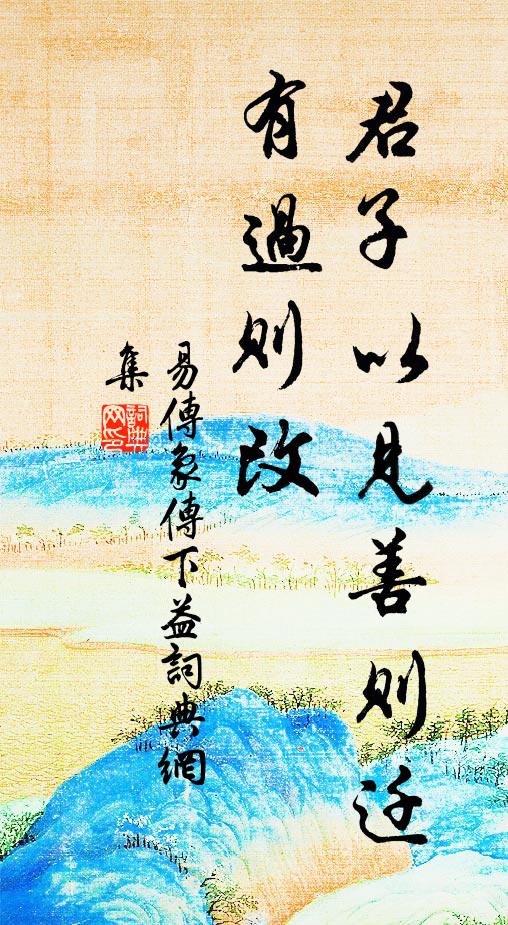 君子以見善則迁
有過則改
易傳象傳下益詞典網
集
詞典網印